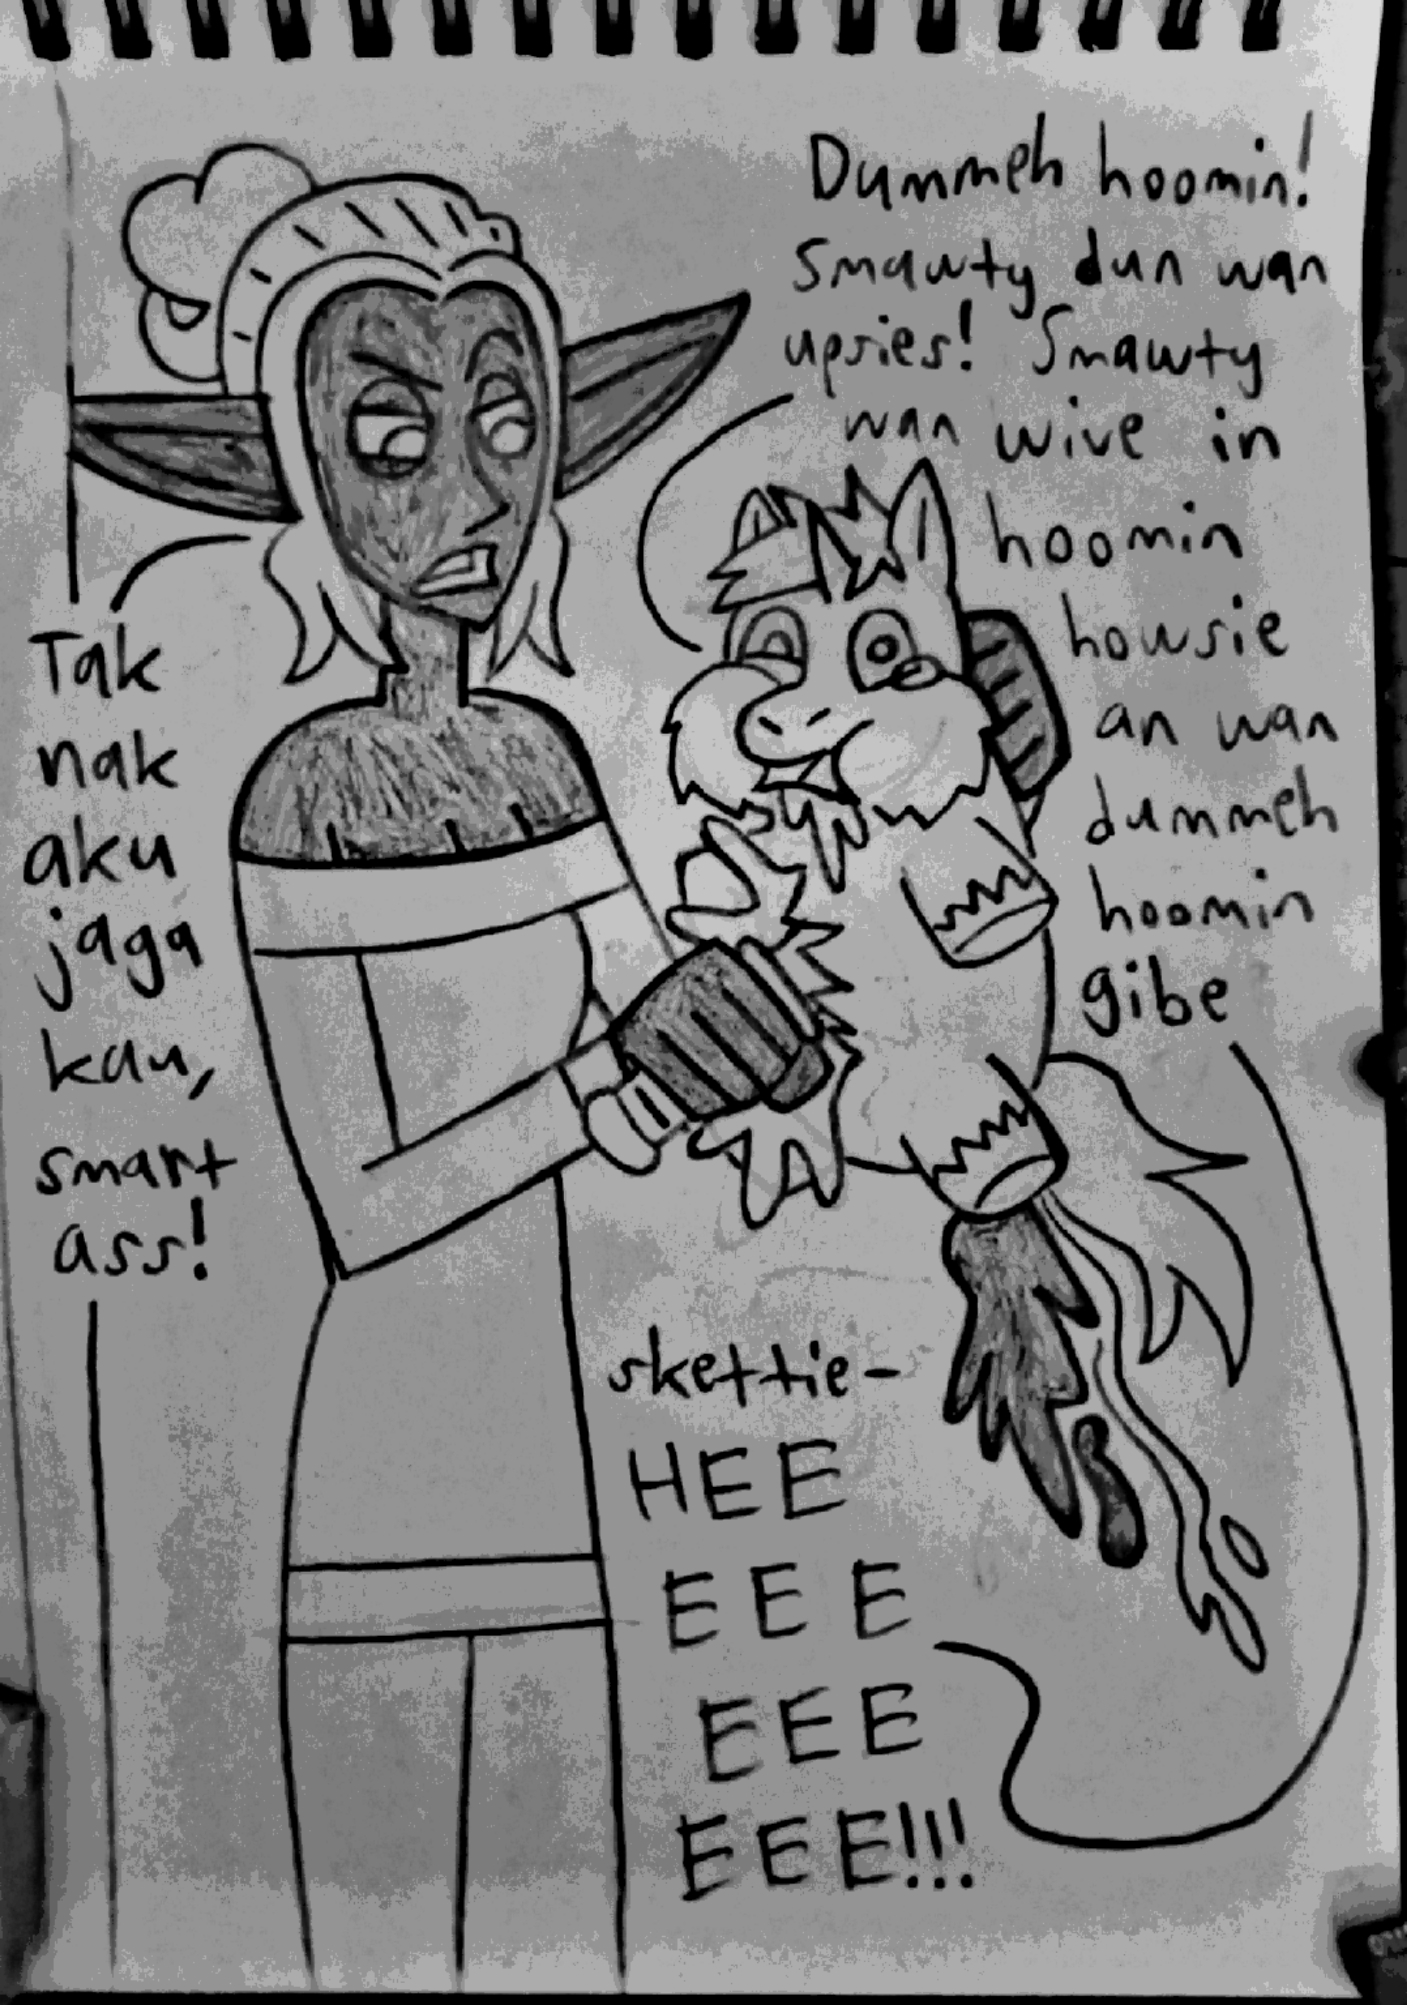 Dummeh hoomin!
Smawty dun wan
upsies! Smawty
wan wive in
hoomin
howsie
an wan
dummeh
hoomin
gibe
skettie-
HEE
EEE
EEE
EEE!!!
Tak
nak
aku
jaga
kau,
smart
ass!